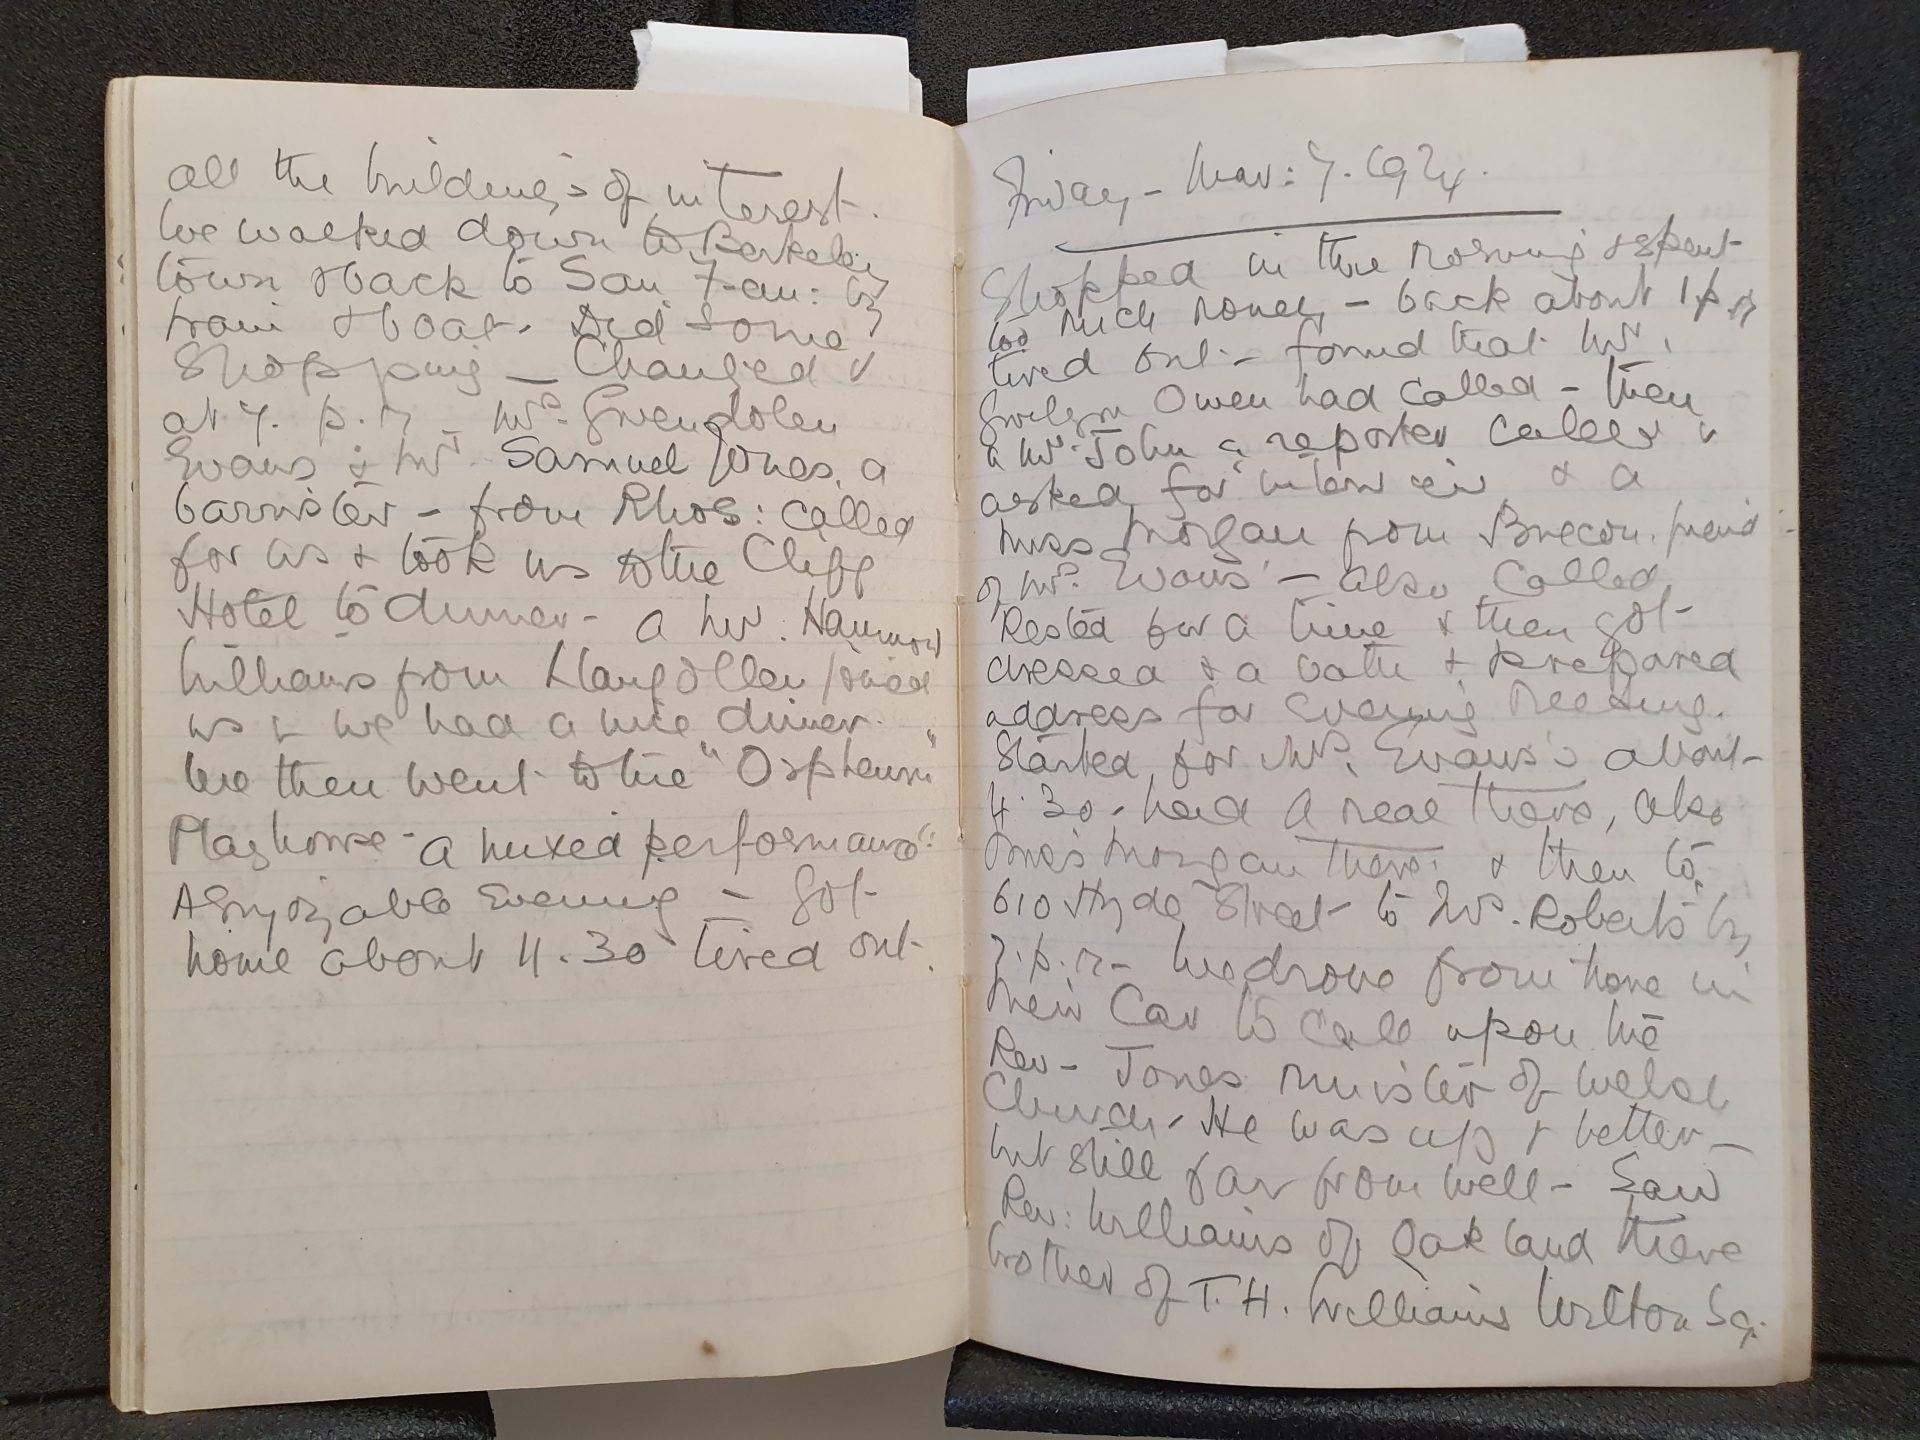 all the buildings of interest.
We walked down to Berkeley
town & back to San Fran: by
train & boat. Did some
Shopping - Changed &
at 7. p.m - Mrs. Gwendolen
Evans & Mr. Samuel Jones, a
barrister - from Rhos: called
for us & took us to the Cliff
Hotel to dinner - a Mr. Hammond
Williams from Llangollen joined
us & we had a nice dinner.
We then went to the "Orpheum"
Playhouse - a mixed performance.
Enjoyable Evening - Got
home about 11.30 tired out.
Friday - Mar: 7. 1924.
Shopped in the morning & spent
too much money - back about 1 p.m
tired out - found that Mr.
Owen had called - then
a Mr. John a reporter called &
asked for interview & a
Miss Morgan from Brecon. friend
of Mrs. Evans' - also called
Rested for a time & then got
dressed & a bath & prepared
address for Evening Meeting.
Started for Mrs. Evans's about
4.30 - had a meal there, also
Miss Morgan there. & then to
610 Hyde Street to Mrs. Roberts by
7. p.m - We drove from here in
their Car to call upon the
Rev - Jones Minister of Welsh
Church - He was up & better -
but still far from well - Saw
Rev: Williams of Oakland there
brother of T. H. Williams Wilton Sq.